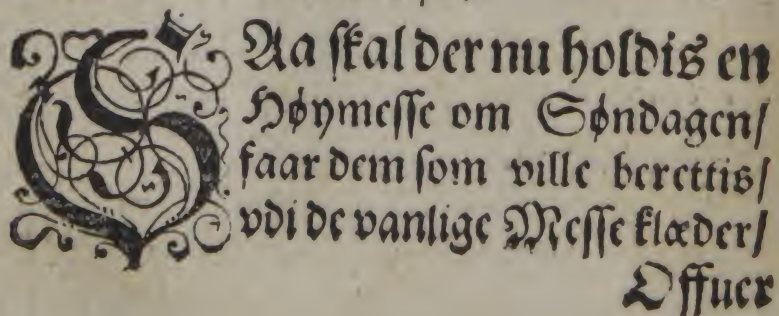 SAa skal der nu holdis en
Høymesse om Søndagen/
faar dem som ville berettis/
vdi de vanlige Messe klæder/
Offuer